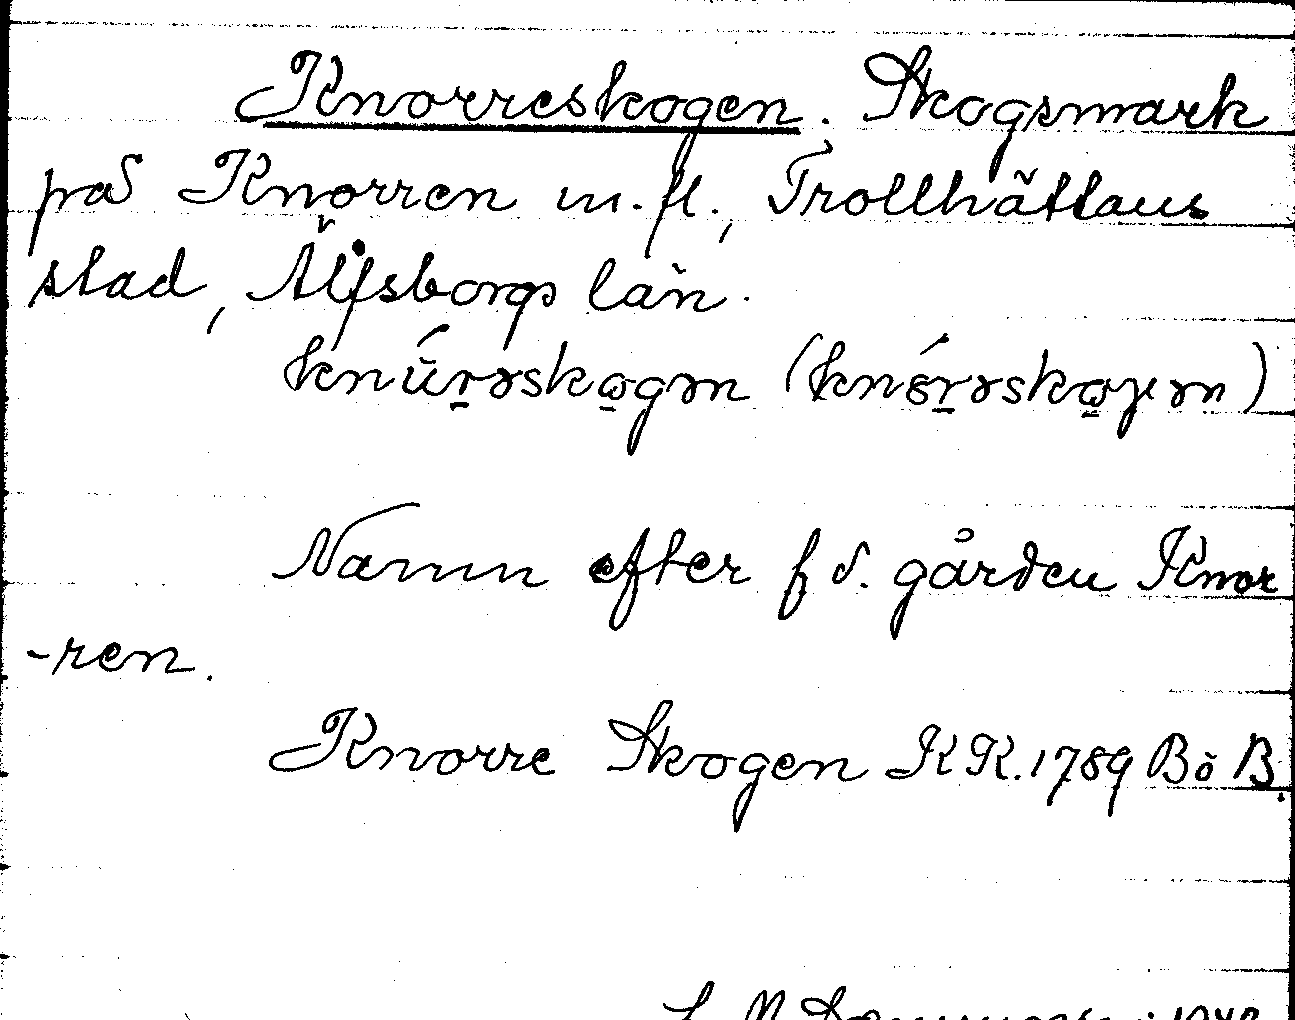 Knorreskogen. Skogsmark
på Knorren m.fl., Trollhättans
stad, Älfsborgs län.
knúr̠əskꞷ̠gən (knɞ́r̠əskꞷ̠γən)
Namn efter f d. gården Knor
-ren.
Knorre Skogen KK. 1789 Bö B.